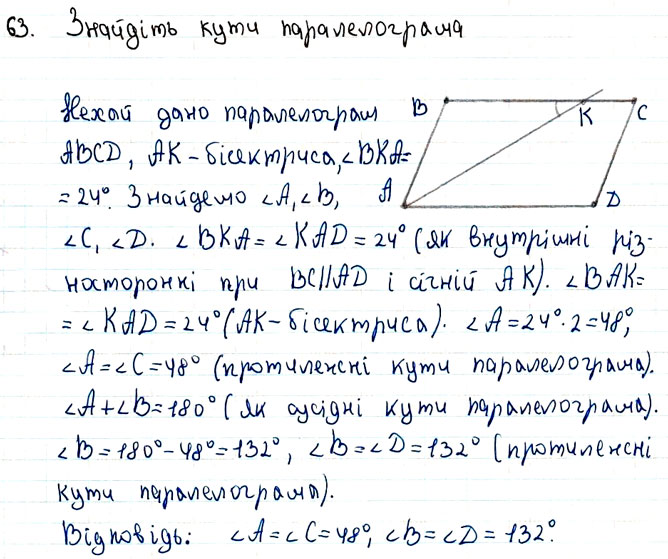 63. Знайдіть кути паралелограма
Нехай дано паралелограм
ABCD, AK - бісектриса, ∠BKA=
= 24°. Знайдемо ∠A, ∠B,
∠C, ∠D. ∠BKA = ∠KAD = 24° (як внутрішні різ-
носторонні при BC||AD і січній AK). ∠BAK=
= ∠KAD = 24° (AK - бісектриса). ∠A = 24° · 2 = 48°,
∠A = ∠C = 48° (протилежні кути паралелограма).
∠A + ∠B = 180° (як сусідні кути паралелограма).
∠B = 180° - 48° = 132°, ∠B = ∠D = 132° (протилежні
кути паралелограма).
Відповідь: ∠A = ∠C = 48°, ∠B = ∠D = 132°.
B
K
C
A
D